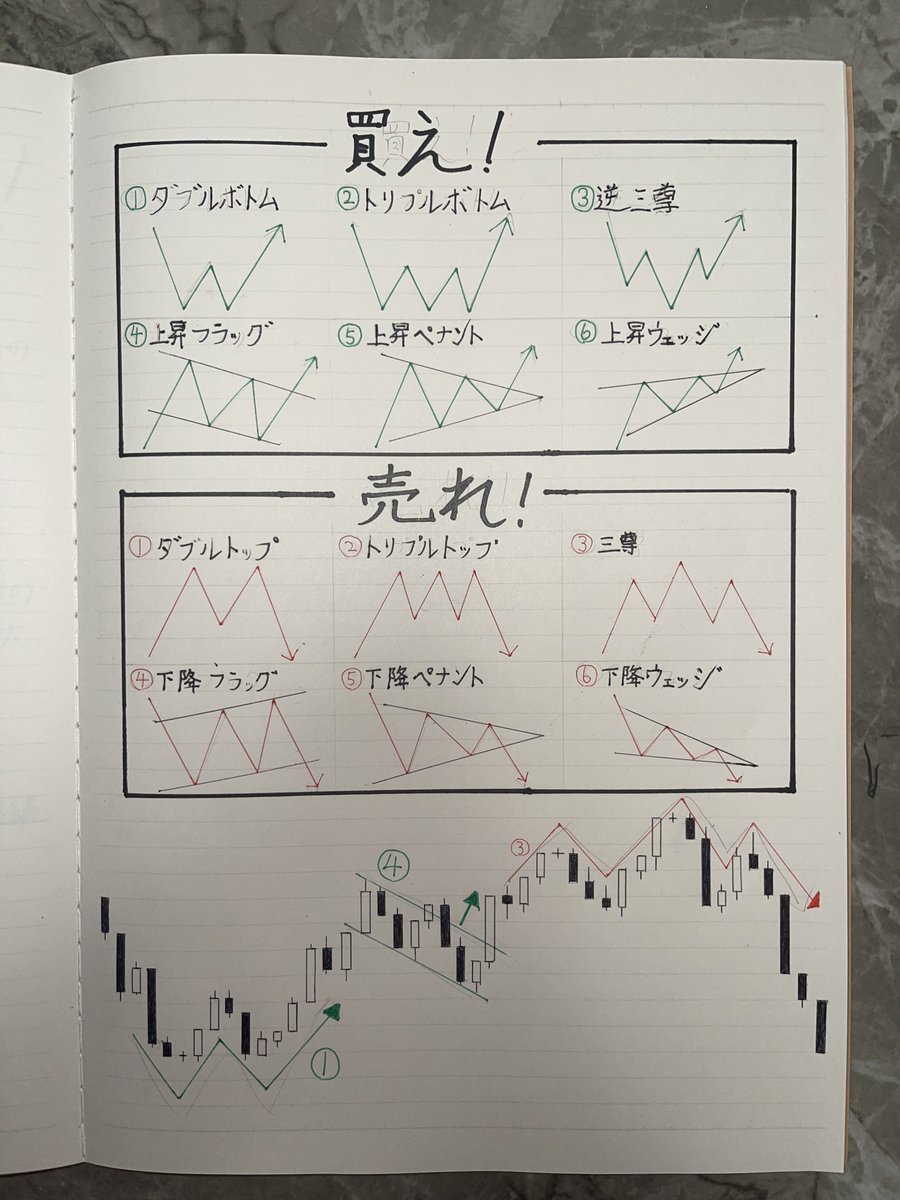 買え!
①ダブルボトム ②トリプルボトム ③逆三尊
④上昇フラッグ ⑤上昇ペナント ⑥上昇ウェッジ
売れ!
①ダブルトップ ②トリプルトップ ③三尊
④下降フラッグ ⑤下降ペナント ⑥下降ウェッジ
③
④
①